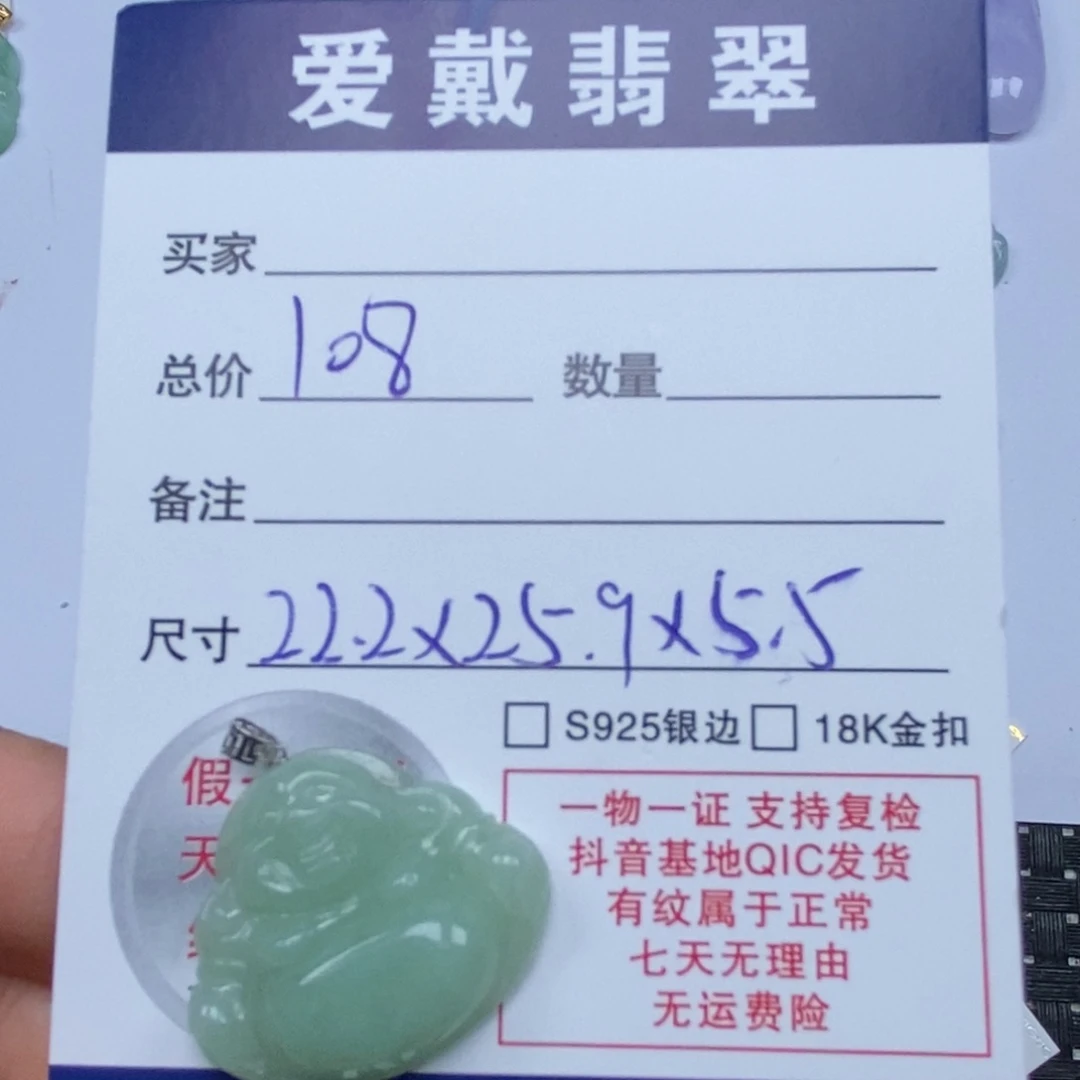 爱戴翡翠
买家
总价 108 数量
备注
尺寸 22.2x25.9x5.5
S925银边 18K金扣
假
天
一物一证 支持复检
抖音基地QIC发货
有纹属于正常
七天无理由
无运费险